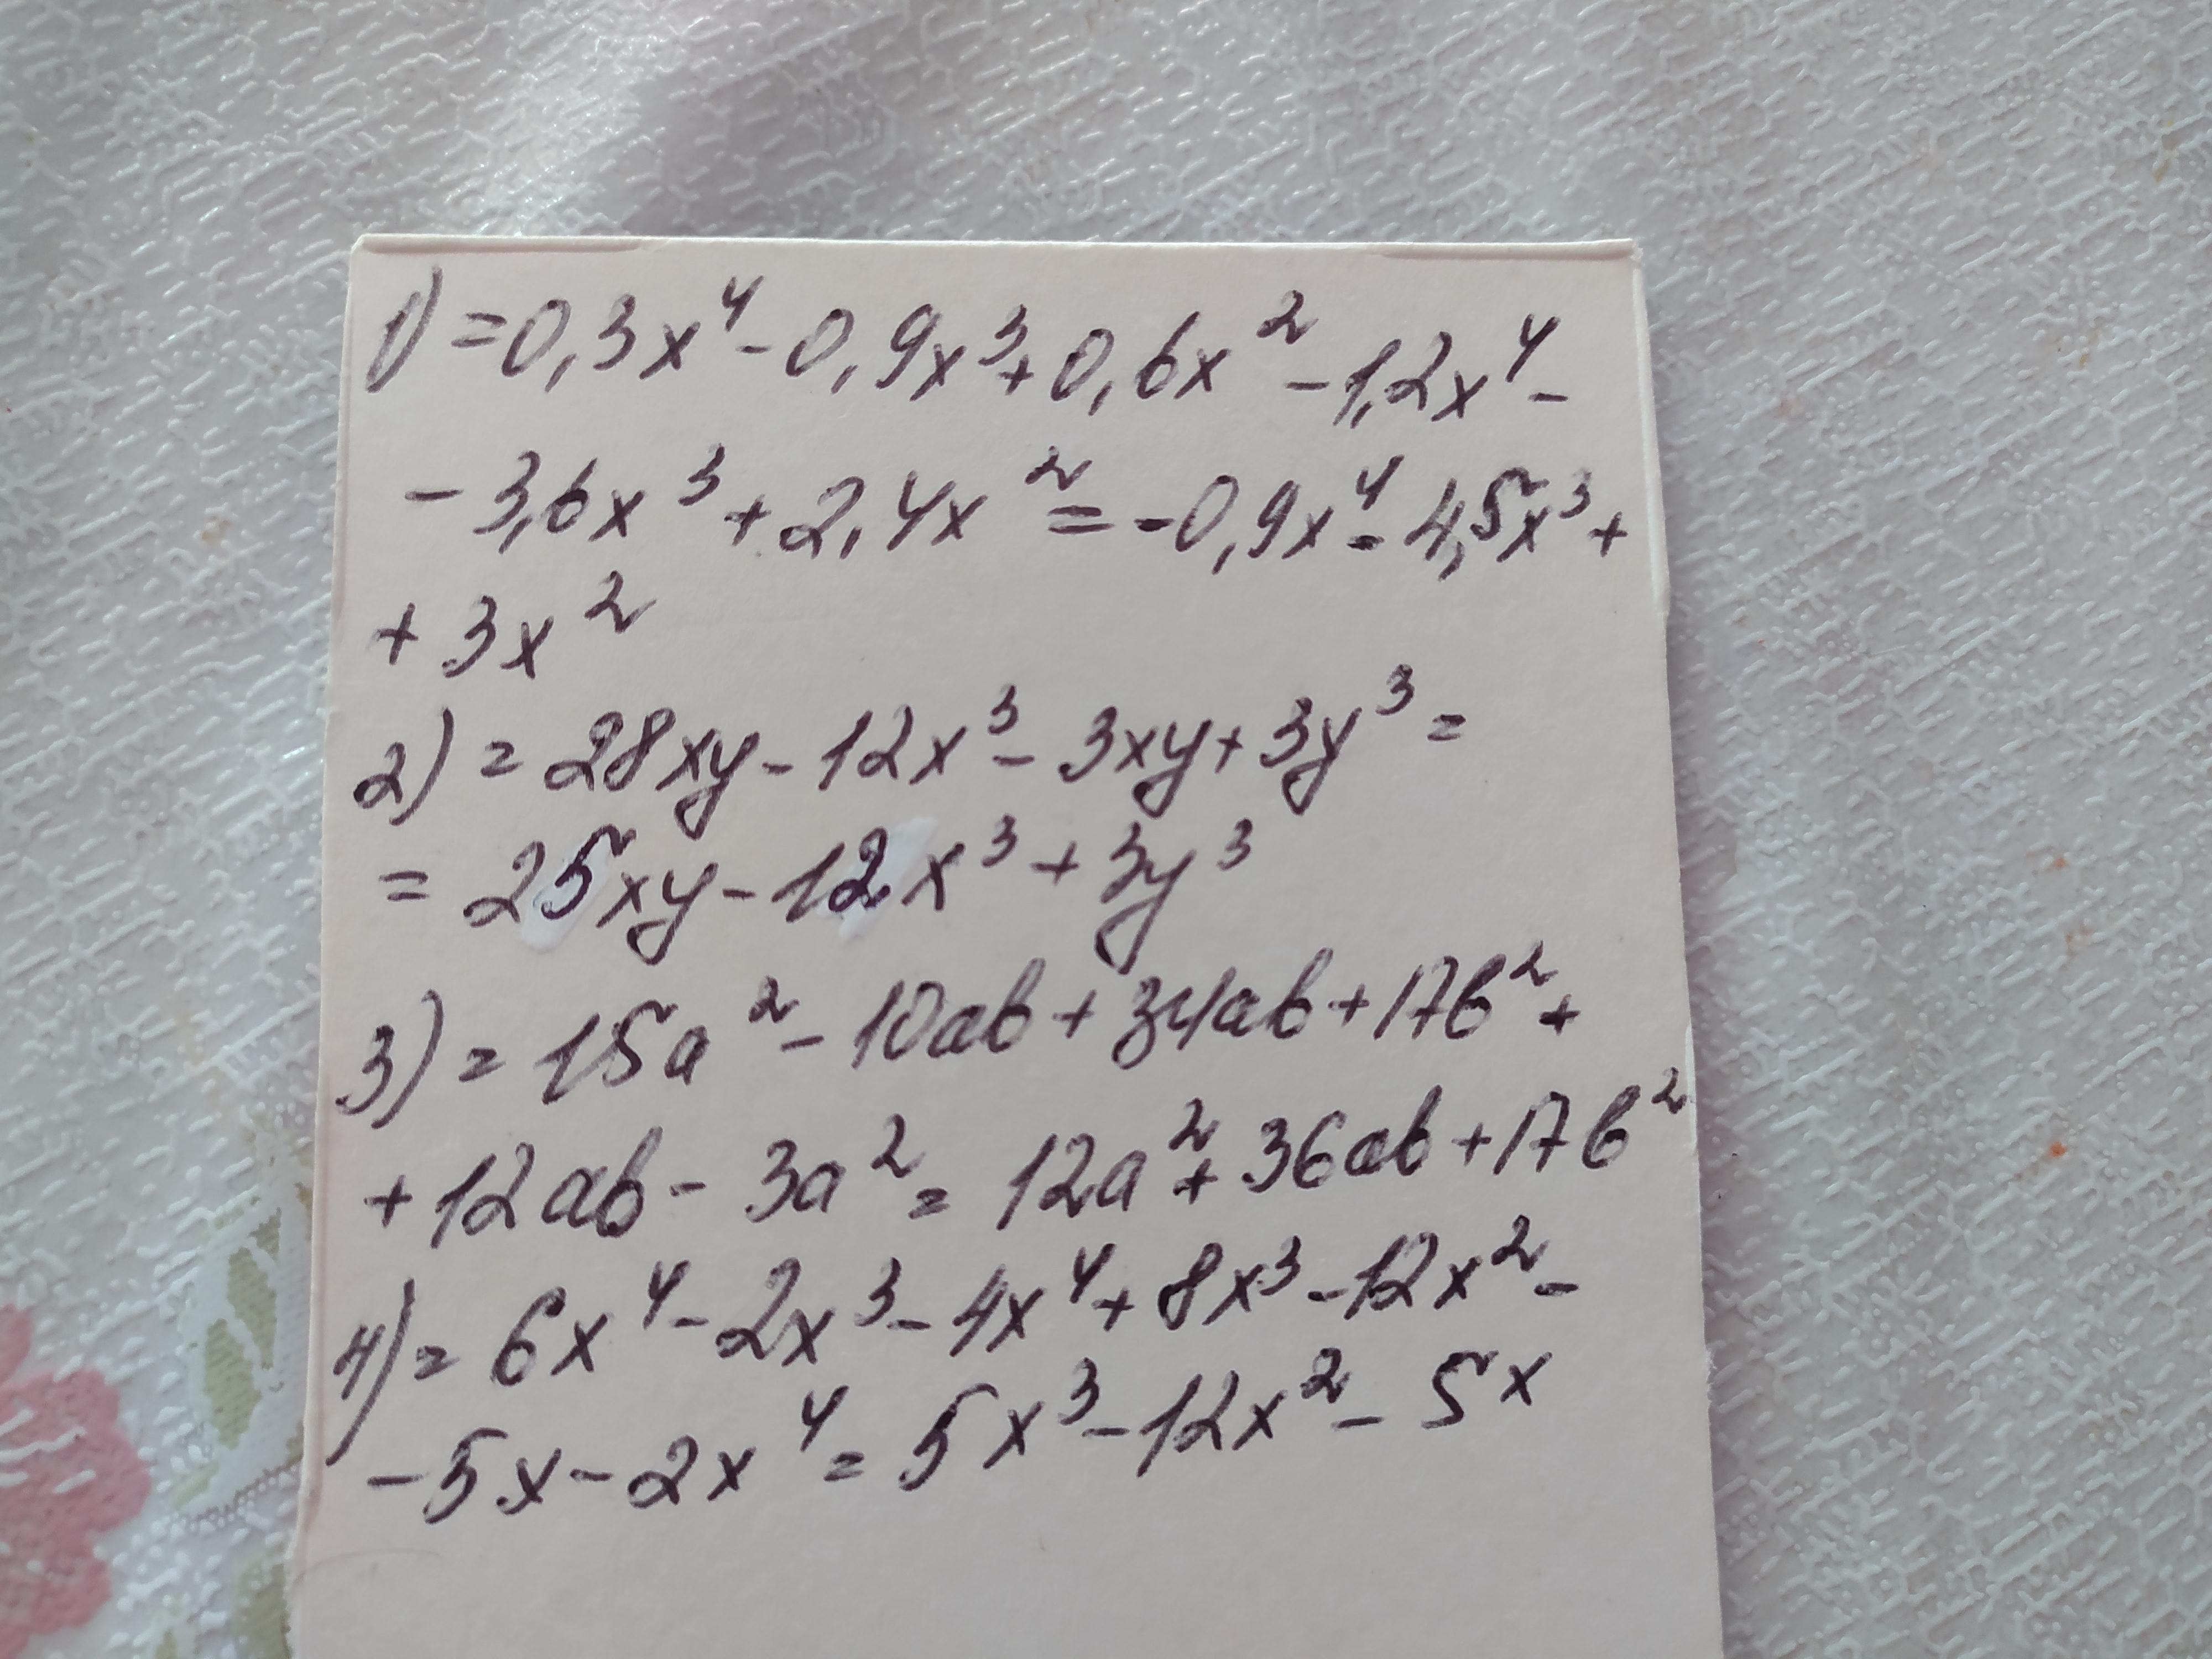 1) = 0,3x⁴ - 0,9x³ + 0,6x² - 1,2x⁴ -
- 3,6x³ + 2,4x² = -0,9x⁴ - 4,5x³ +
+ 3x²
2) = 28xy - 12x³ - 3xy + 3y³ =
= 25xy - 12x³ + 3y³
3) = 15a² - 10ab + 34ab + 17b² +
+ 12ab - 3a² = 12a² + 36ab + 17b²
4) = 6x⁴ - 2x³ - 4x⁴ + 8x³ - 12x² -
- 5x - 2x⁴ = 5x³ - 12x² - 5x